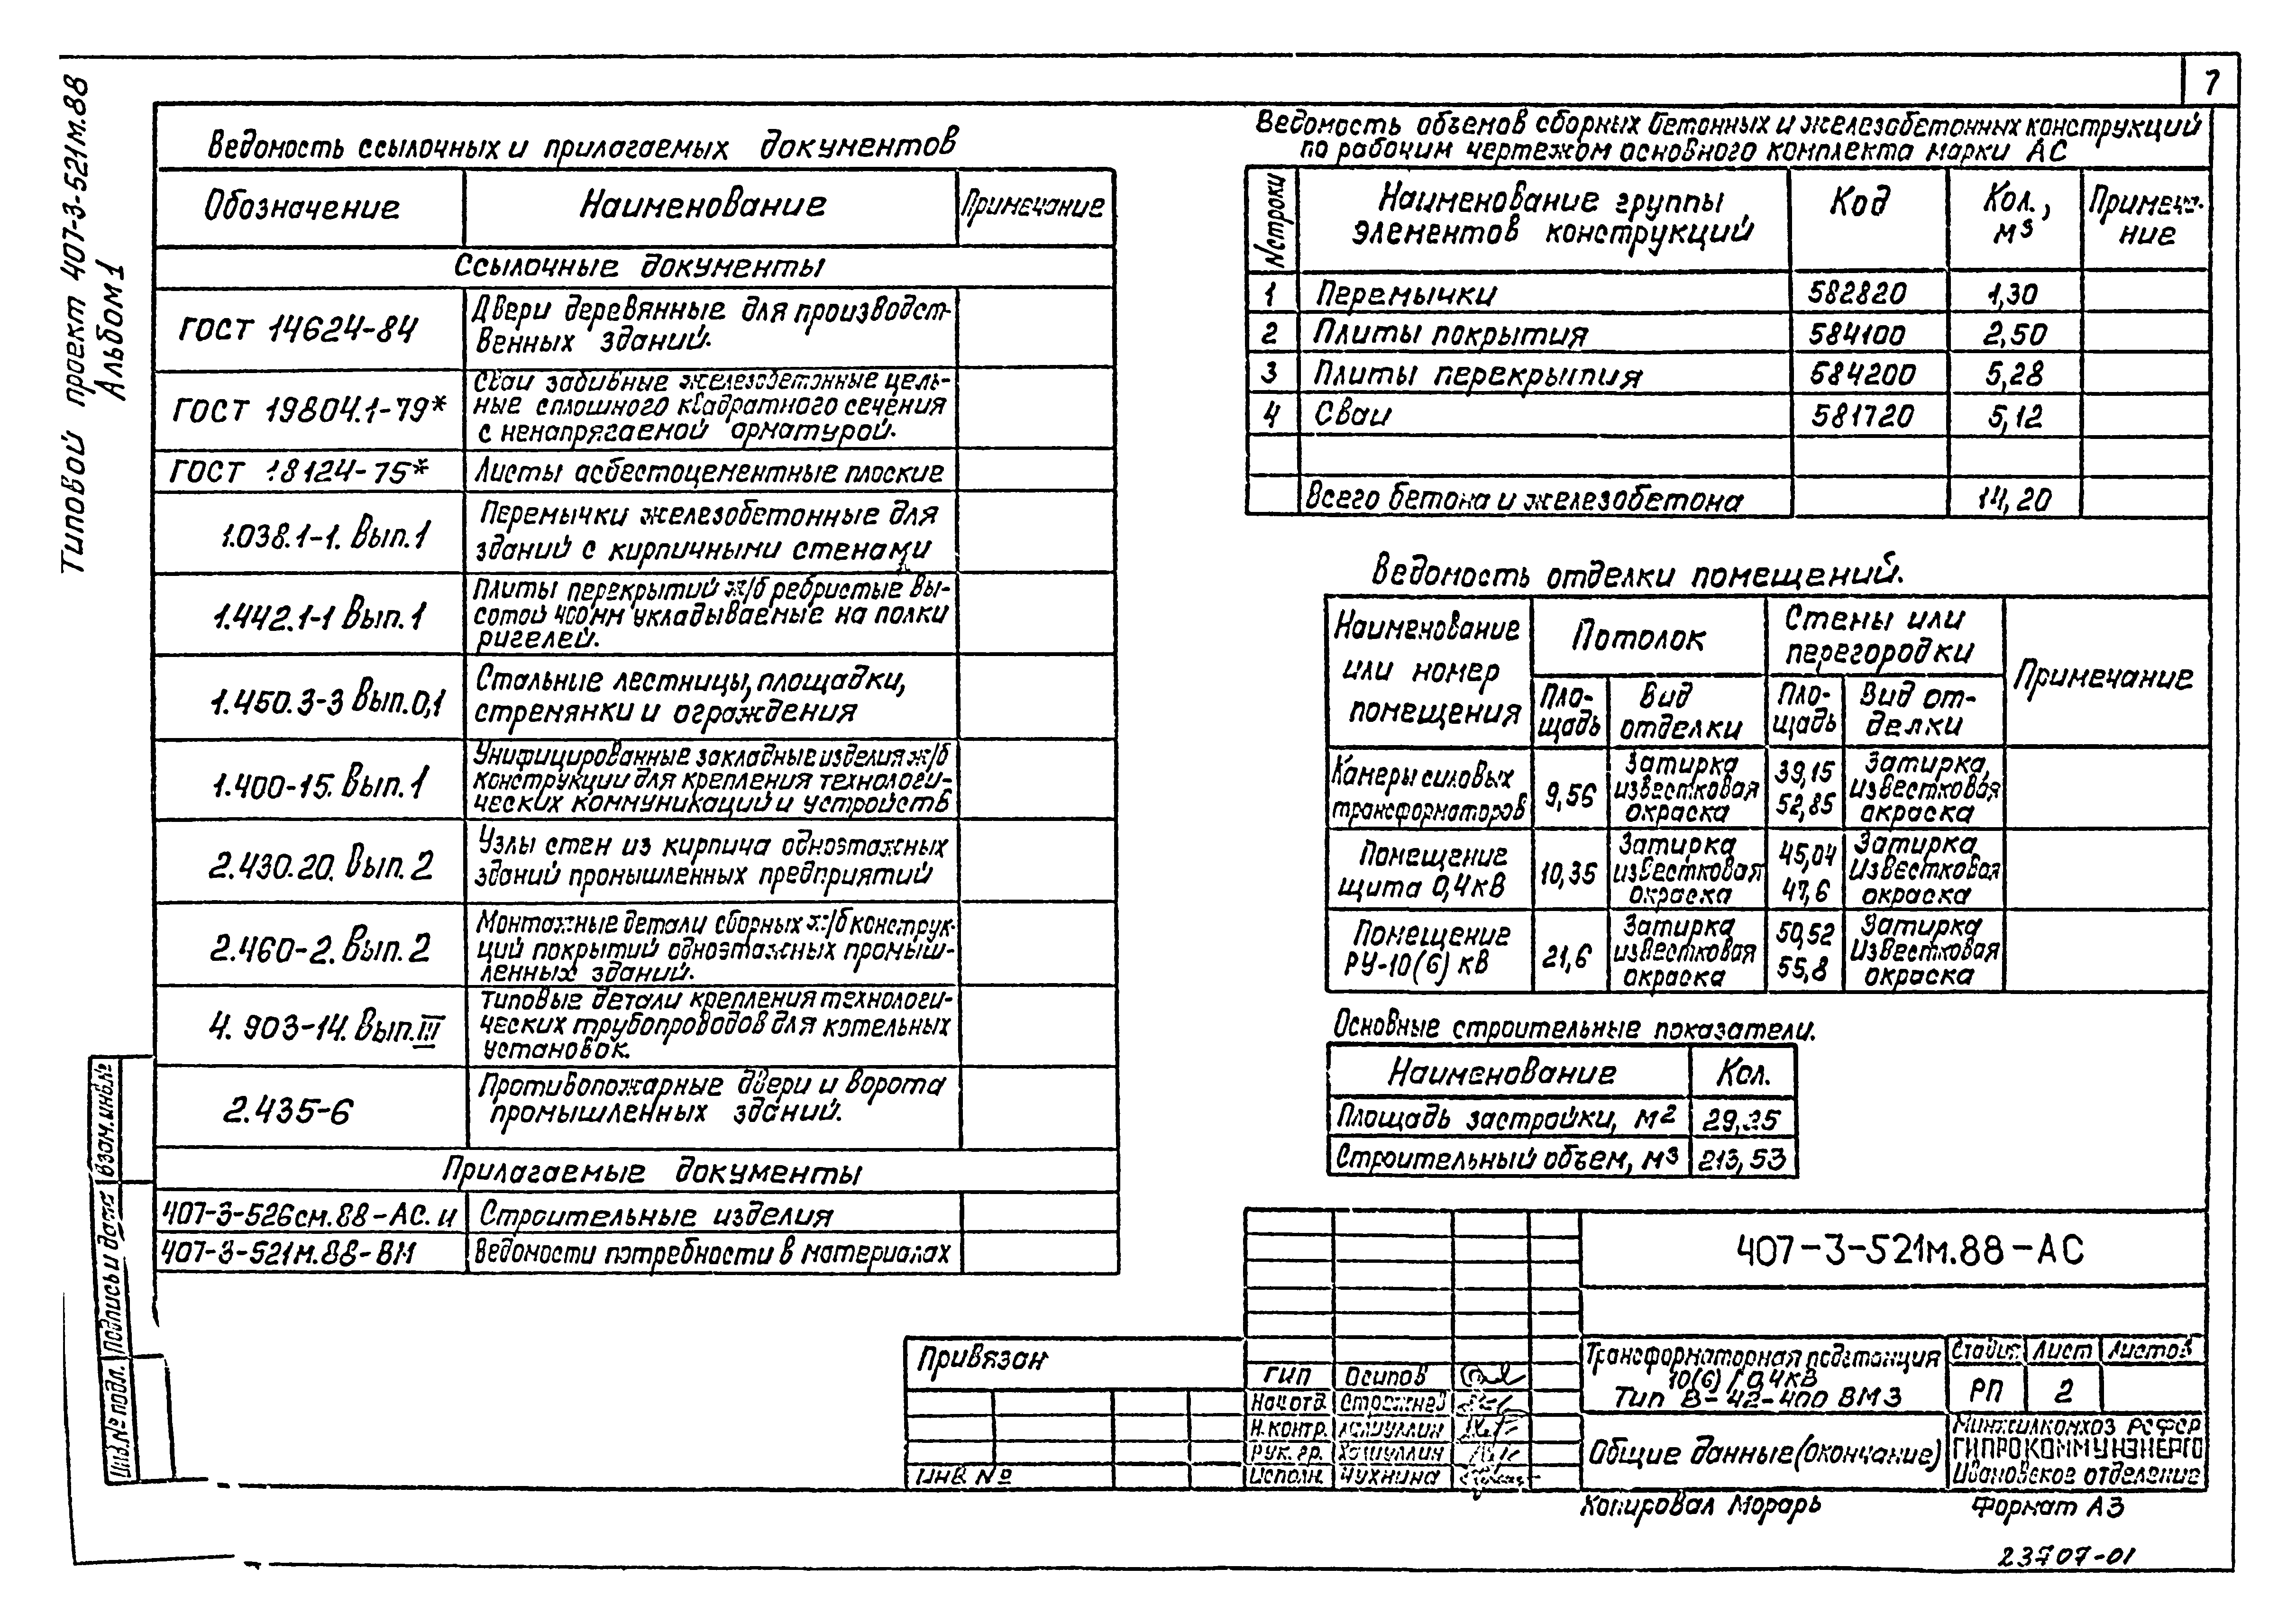 7
Типовой проект 407-3-521м.88
Альбом 1
Ведомость ссылочных и прилагаемых документов
Обозначение Наименование Примечание
Ссылочные документы
ГОСТ 14624-84
Двери деревянные для производст-
венных зданий.
ГОСТ 19804.1-79*
Сваи забивные железобетонные цель-
ные сплошного квадратного сечения
с ненапрягаемой арматурой.
ГОСТ 18124-75* Листы асбестоцементные плоские
1.038.1-1. Вып.1
Перемычки железобетонные для
зданий с кирпичными стенами
1.442.1-1 Вып.1
Плиты перекрытий ж/б ребристые вы-
сотой 400мм укладываемые на полки
ригелей.
1.450.3-3 Вып.0,1
Стальные лестницы, площадки,
стремянки и ограждения
1.400-15. Вып.1
Унифицированные закладные изделия ж/б
конструкции для крепления технологи-
ческих коммуникаций и устройств
2.430.20. Вып.2
Узлы стен из кирпича одноэтажных
зданий промышленных предприятий
2.460-2. Вып.2
Монтажные детали сборных ж/б конструк-
ций покрытий одноэтажных промыш-
ленных зданий.
4.903-14. Вып.III
Типовые детали крепления технологи-
ческих трубопроводов для котельных
установок.
2.435-6
Противопожарные двери и ворота
промышленных зданий.
Прилагаемые документы
407-3-526см.88-АС.и Строительные изделия
407-3-521м.88-ВМ Ведомости потребности в материалах
Ведомость объемов сборных бетонных и железобетонных конструкций
по рабочим чертежом основного комплекта марки АС
N строки
Наименование группы
элементов конструкций
Код
Кол.,
м3
Примеча-
ние
1 Перемычки 582820 1,30
2 Плиты покрытия 584100 2,50
3 Плиты перекрытия 584200 5,28
4 Сваи 581720 5,12
Всего бетона и железобетона 14,20
Ведомость отделки помещений.
Наименование
или номер
помещения
Потолок
Стены или
перегородки
Примечание
Пло-
щадь
Вид
отделки
Пло-
щадь
Вид от-
делки
Камеры силовых
трансформаторов
9,56
Затирка
известковая
окраска
39,15
52,85
Затирка,
известковая
окраска
Помещение
щита 0,4кВ
10,35
Затирка
известковая
окраска
45,04
47,6
Затирка
известковая
окраска
Помещение
РУ-10(6) кВ
21,6
Затирка
известковая
окраска
50,52
55,8
Затирка
известковая
окраска
Основные строительные показатели.
Наименование Кол.
Площадь застройки, м2
Строительный объем, м3 213,53
407-3-521м.88-АС
Привязан
ИНВ №
ГИП Осипов
Нач.отд.
Н.контр.
Рук. гр. Хайуллин
Исполн. Чухнина
Трансформаторная подстанция
10(6)/0,4кВ
Тип В-42-400 ВМ3
Стадия Лист Листов
РП 2
Общие данные (окончание)
Минжилкомхоз РСФСР
ГИПРОКОММУНЭНЕРГО
Ивановское отделение
Копировал Морарь Формат А3
23707-01
Взам.инв.№
Подпись и дата
Инв.№ подл.